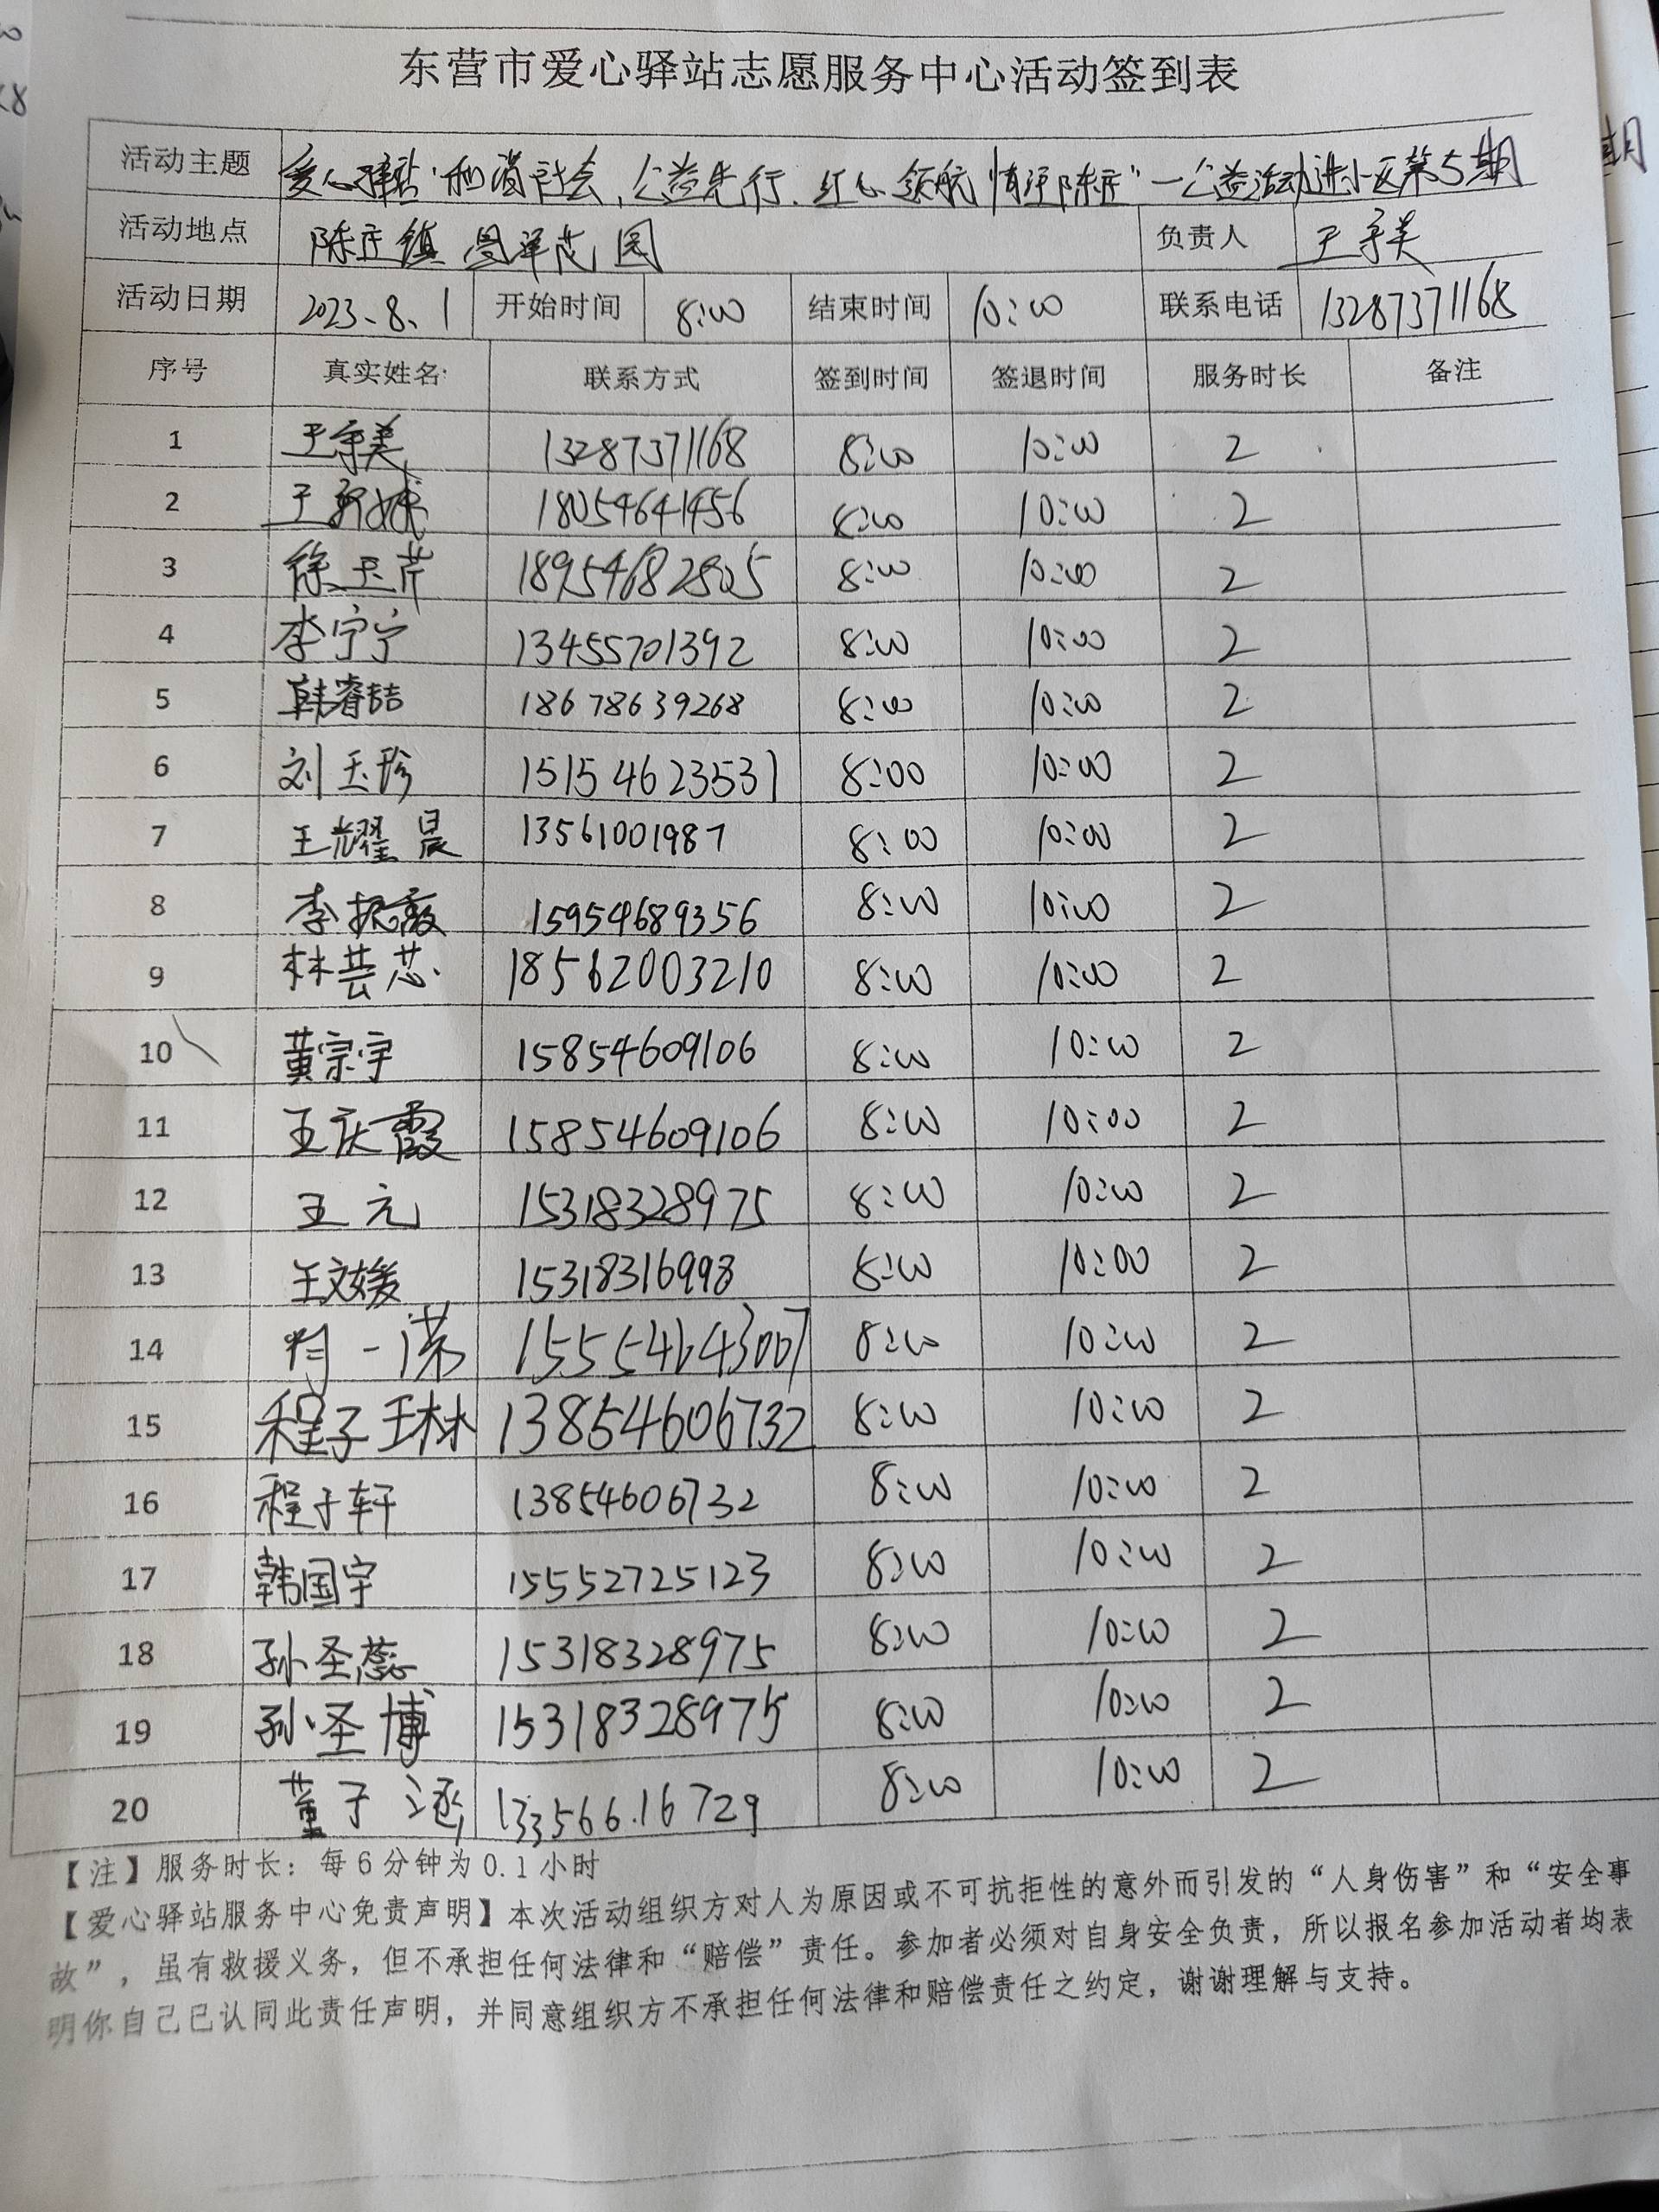 东营市爱心驿站志愿服务中心活动签到表
活动主题 爱心驿站 社会,公益先行.红心领航 陈庄"一公益活动进小区第5期
活动地点 陈庄镇 园 负责人 王
活动日期 2023.8.1 开始时间 8:00 结束时间 10:00 联系电话 13287371168
序号 真实姓名 联系方式 签到时间 签退时间 服务时长 备注
1 王 13287371168 8:00 10:00 2
2 18054641456 8:00 10:00 2
3 徐玉芹 18954682805 8:00 10:00 2
4 李宁宁 13455701392 8:00 10:00 2
5 韩睿喆 18678639268 8:00 10:00 2
6 刘玉珍 15154623531 8:00 10:00 2
7 王耀晨 13561001987 8:00 10:00 2
8 李振 15954689356 8:00 10:00 2
9 林芸芯 18562003210 8:00 10:00 2
10 黄宗宇 15854609106 8:00 10:00 2
11 王庆霞 15854609106 8:00 10:00 2
12 王元 15318328975 8:00 10:00 2
13 王文媛 15318316998 8:00 10:00 2
14 一诺 15554643007 8:00 10:00 2
15 程子琳 13854606732 8:00 10:00 2
16 程子轩 13854606732 8:00 10:00 2
17 韩国宇 15552725123 8:00 10:00 2
18 孙圣蕊 15318328975 8:00 10:00 2
19 孙圣博 15318328975 8:00 10:00 2
20 董子涵 133566.16729 8:00 10:00 2
【注】服务时长:每6分钟为0.1小时
【爱心驿站服务中心免责声明】本次活动组织方对人为原因或不可抗拒性的意外而引发的“人身伤害”和“安全事
故”,虽有救援义务,但不承担任何法律和“赔偿”责任。参加者必须对自身安全负责,所以报名参加活动者均表
明你自己已认同此责任声明,并同意组织方不承担任何法律和赔偿责任之约定,谢谢理解与支持。